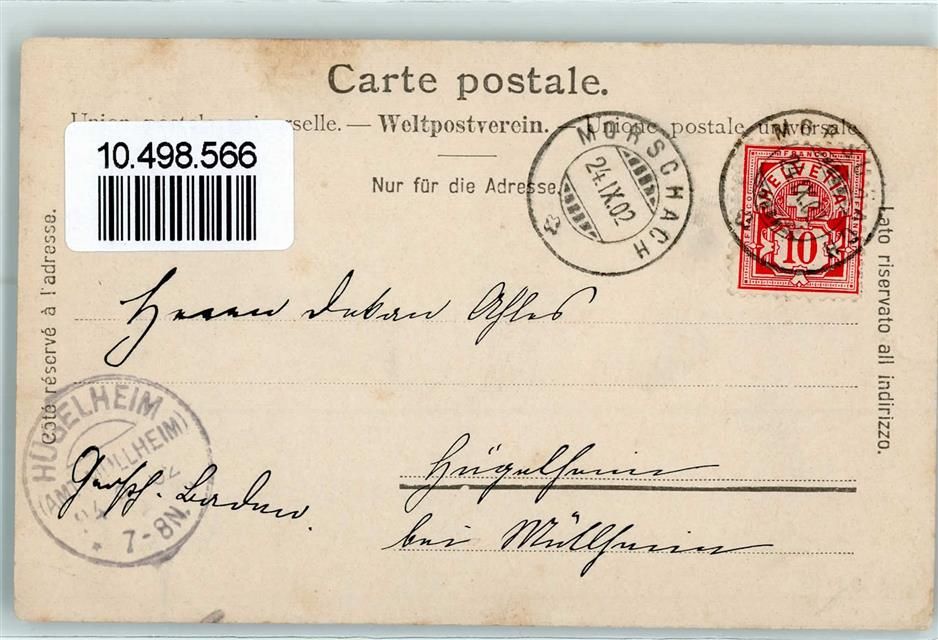 Carte postale.
Union postale universelle. — Weltpostverein. — Unione postale universale
Nur für die Adresse.
10.498.566
MORSCHACH
24.IX.02
MORSCHACH
FRANCO
HELVETIA
10
Côté réservé à l'adresse.
Lato riservato all indirizzo.
Herrn Dekan Ahles
HÜGELHEIM
(AMT MÜLLHEIM)
7-8N.
Hügelheim
Großh. Baden.
bei Müllheim